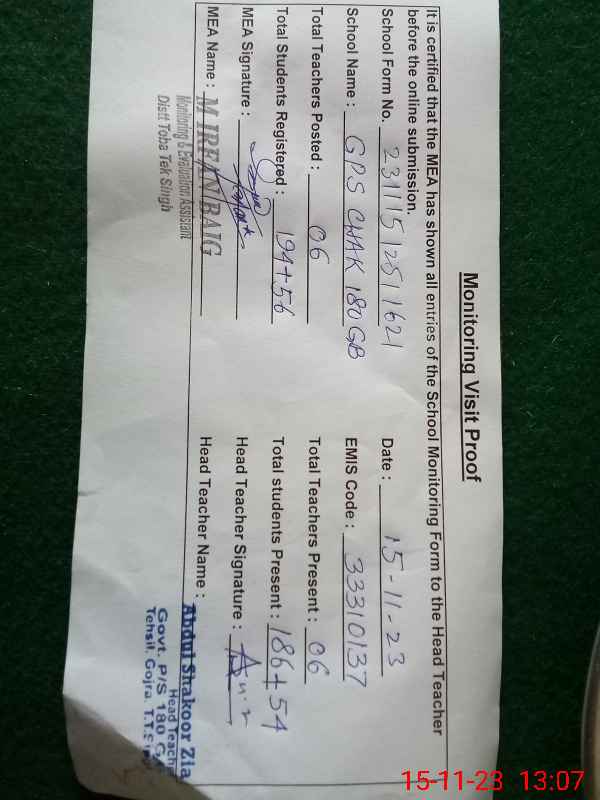 Monitoring Visit Proof
It is certified that the MEA has shown all entries of the School Monitoring Form to the Head Teacher
before the online submission.
School Form No. 23111512511621 Date : 15-11-23
School Name : GPS CHAK 180 GB EMIS Code : 33310137
Total Teachers Posted : 06 Total Teachers Present : 06
Total Students Registered : 194+56 Total students Present : 186+54
MEA Signature : Head Teacher Signature :
MEA Name : M IRFAN BAIG Head Teacher Name : Abdul Shakoor Zia
Monitoring & Evaluation Assistant
Distt Toba Tek Singh
Head Teach
Govt. P/S 180 G
Tehsil. Gojra. T.T.S
15-11-23 13:07